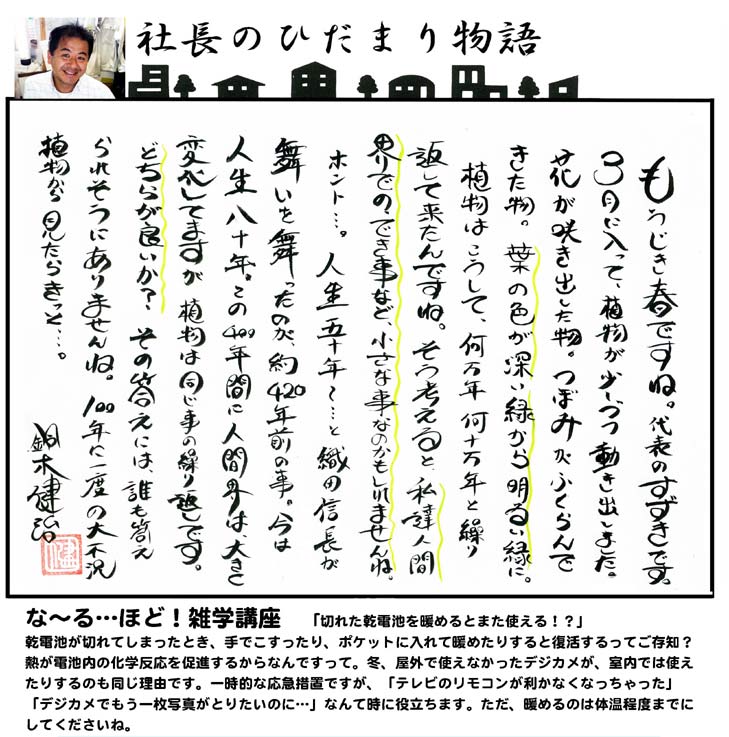 社長のひだまり物語
もうじき春ですね。代表のすずきです。
3月に入って、植物が少しづつ動き出しました。
花が咲き出した物。つぼみがふくらんで
きた物。葉の色が深い緑から明るい緑に。
植物はこうして、何万年何十万年と繰り
返して来たんですね。そう考えると私達人間
界りでのでき事など、小さな事なのかもしれませんね。
ホント…。人生五十年〜…と織田信長が
舞いを舞ったのが、約420年前の事。今は
人生八十年。この400年間に人間界は、大きく
変化してますが植物は同じ事の繰り返しです。
どちらが良いか?その答えには、誰も答え
られそうにありませんね。100年に一度の大不況
植物から見たらきっと…。
鈴木健治
な〜る…ほど!雑学講座 「切れた乾電池を暖めるとまた使える!?」
乾電池が切れてしまったとき、手でこすったり、ポケットに入れて暖めたりすると復活するってご存知?
熱が電池内の化学反応を促進するからなんですって。冬、屋外で使えなかったデジカメが、室内では使え
たりするのも同じ理由です。一時的な応急措置ですが、「テレビのリモコンが利かなくなっちゃった」
「デジカメでもう一枚写真がとりたいのに…」なんて時に役立ちます。ただ、暖めるのは体温程度までに
してくださいね。